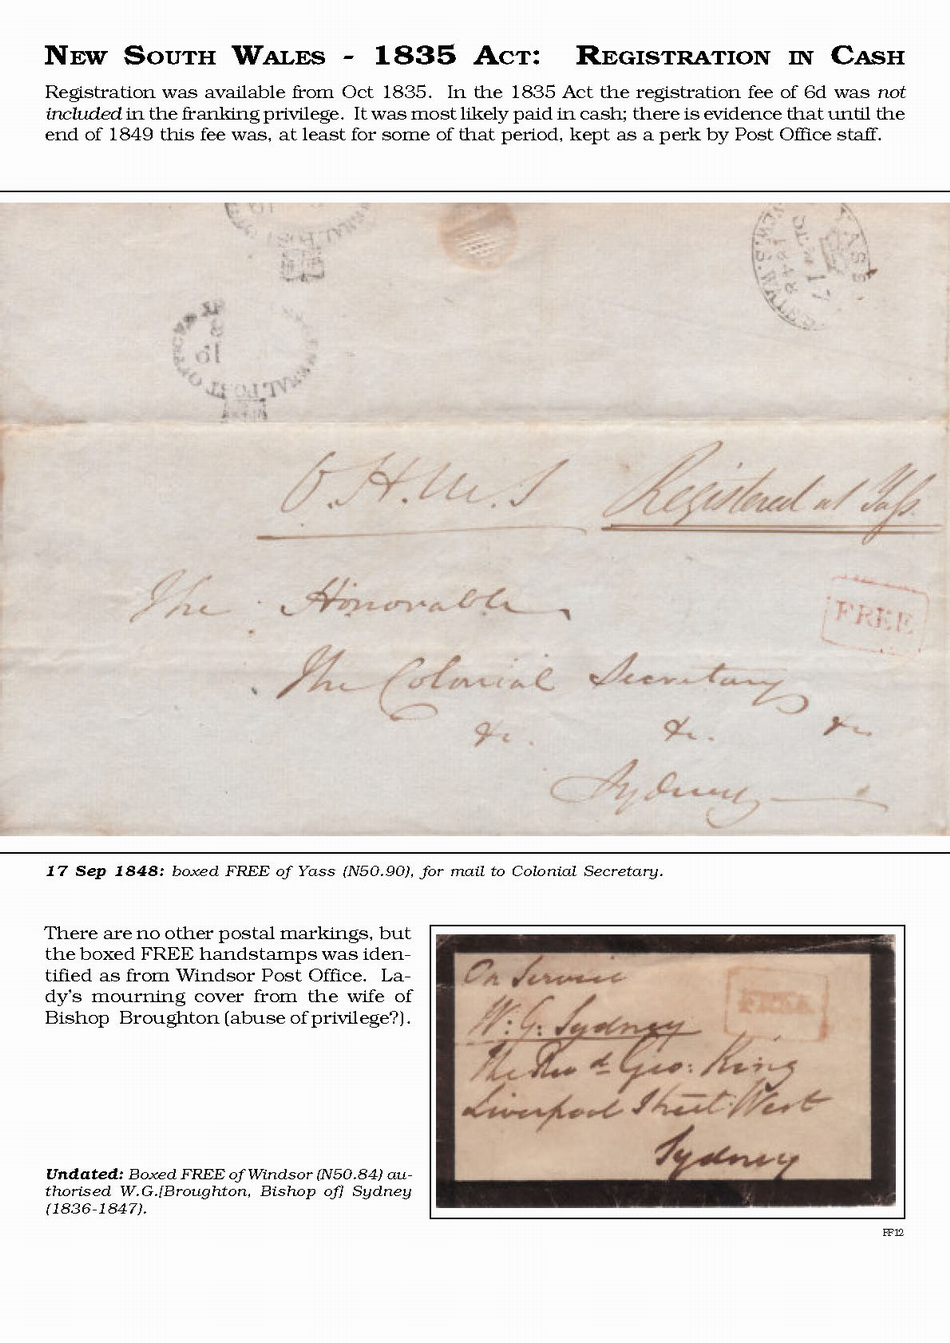 New South Wales - 1835 Act: Registration in Cash
Registration was available from Oct 1835. In the 1835 Act the registration fee of 6d was not
included in the franking privilege. It was most likely paid in cash; there is evidence that until the
end of 1849 this fee was, at least for some of that period, kept as a perk by Post Office staff.
YASS
1848
GENERAL POST OFFICE
O.H.M.S Registered at Yass
The Honorable
FREE
The Colonial Secretary
&c. &c. &c
Sydney
17 Sep 1848: boxed FREE of Yass (N50.90), for mail to Colonial Secretary.
There are no other postal markings, but
the boxed FREE handstamps was iden-
tified as from Windsor Post Office. La-
dy's mourning cover from the wife of
Bishop Broughton (abuse of privilege?).
Undated: Boxed FREE of Windsor (N50.84) au-
thorised W.G.[Broughton, Bishop of] Sydney
(1836-1847).
On Service
FREE
W: G: Sydney
The Revd Geo: King
Liverpool Street West
Sydney
FF12